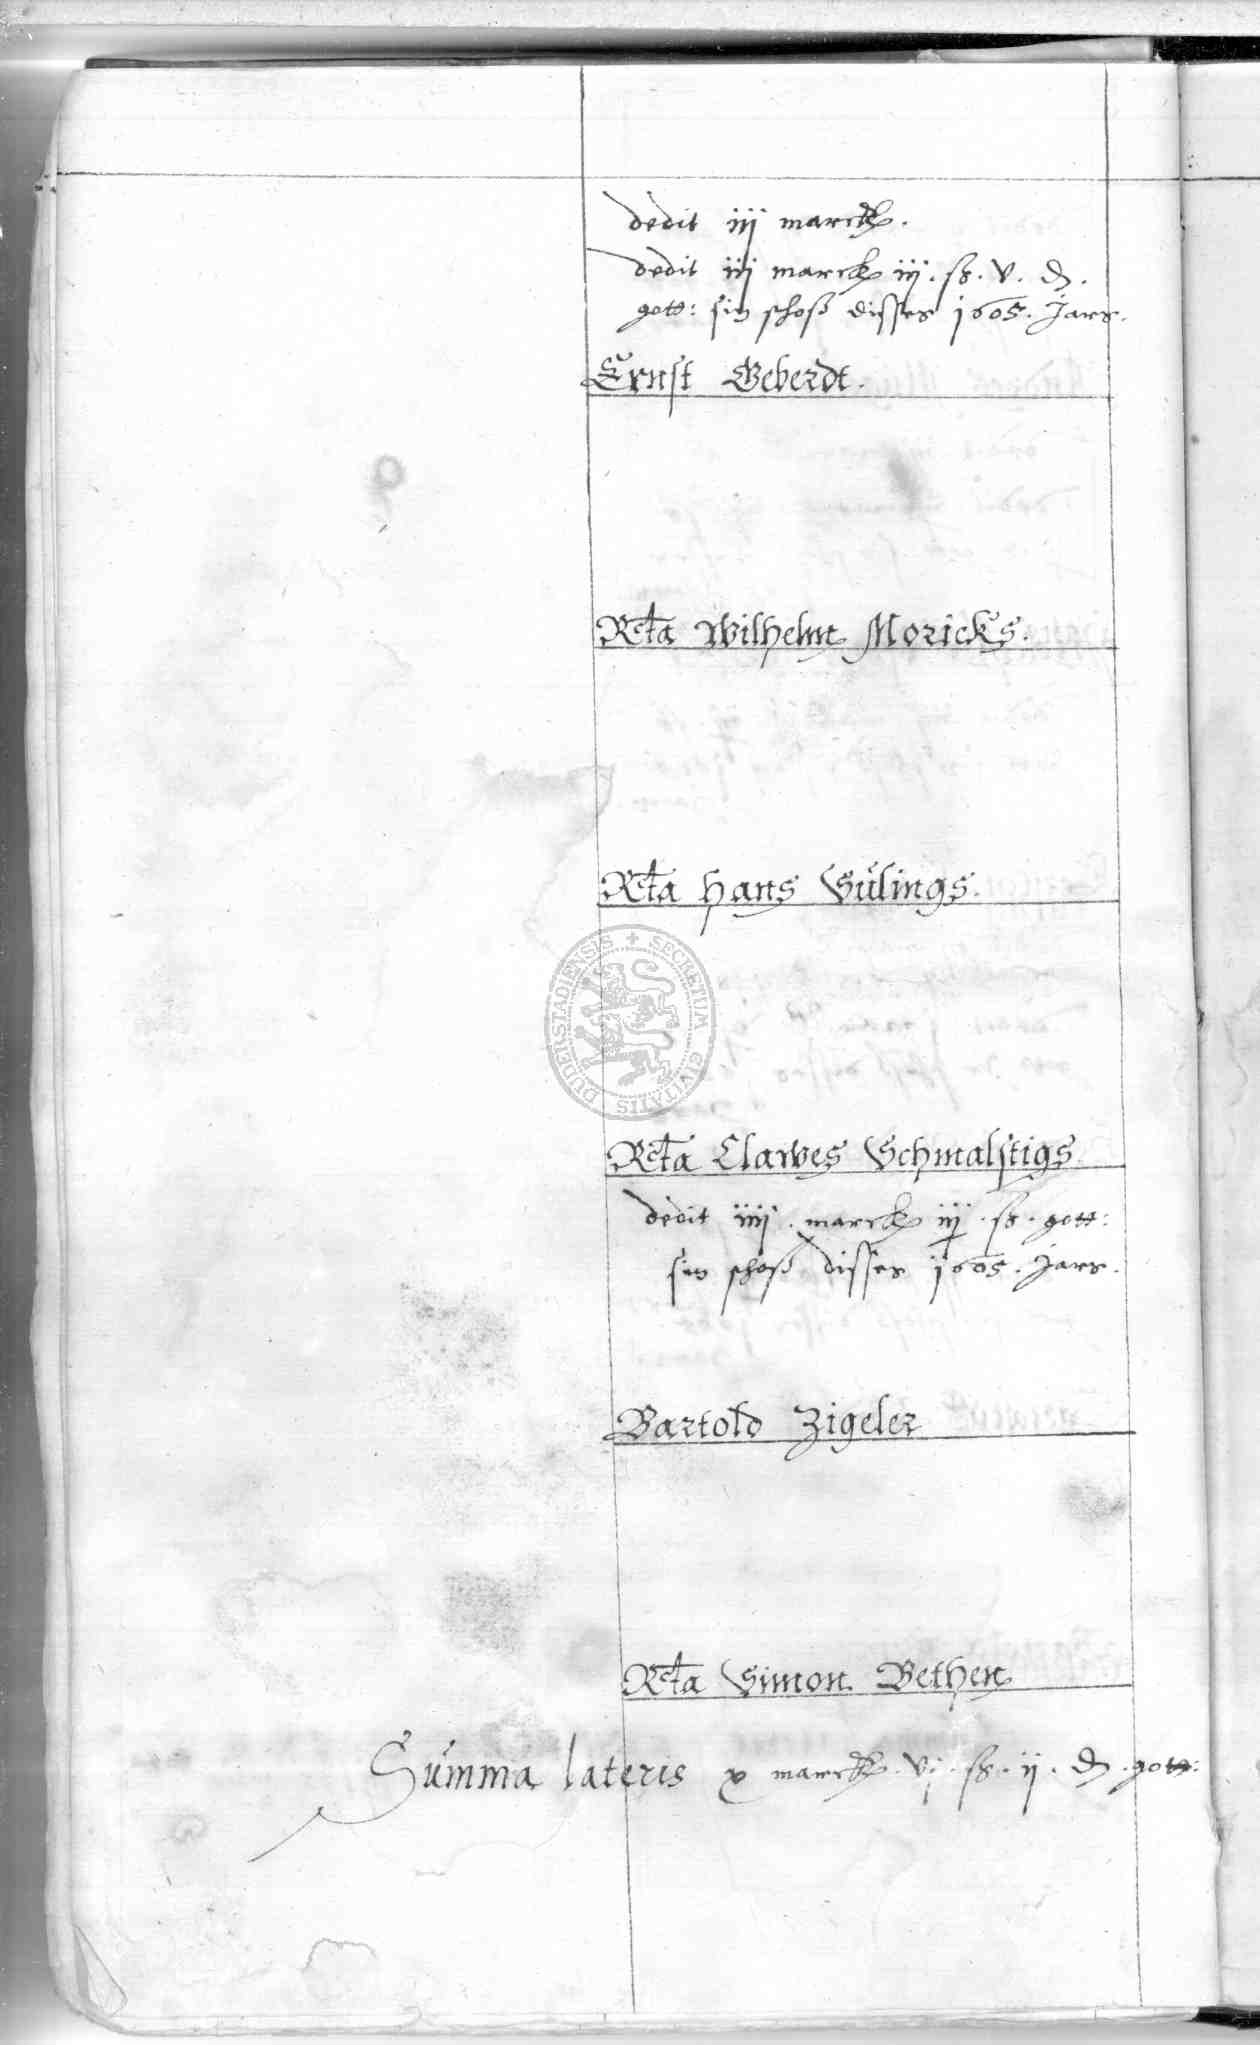 dedit iij marck.
dedit iij marck iij. ß. v. d.
gott: sin schoß disses 1605. Jars.
Ernst Geberdt.
Rcta Wilhelm Moricks.
Rcta Hans Sülings.
DUDERSTADIENSIS + SECRETUM CIVITATIS
Rcta Clawes Schmalstigs
dedit iiij. marck iij. ß. gott:
sin schoß disses 1605. Jars.
Bartold Zigeler
Rcta Simon Bethen
Summa lateris x marck. vj. ß. ij. d. gott: